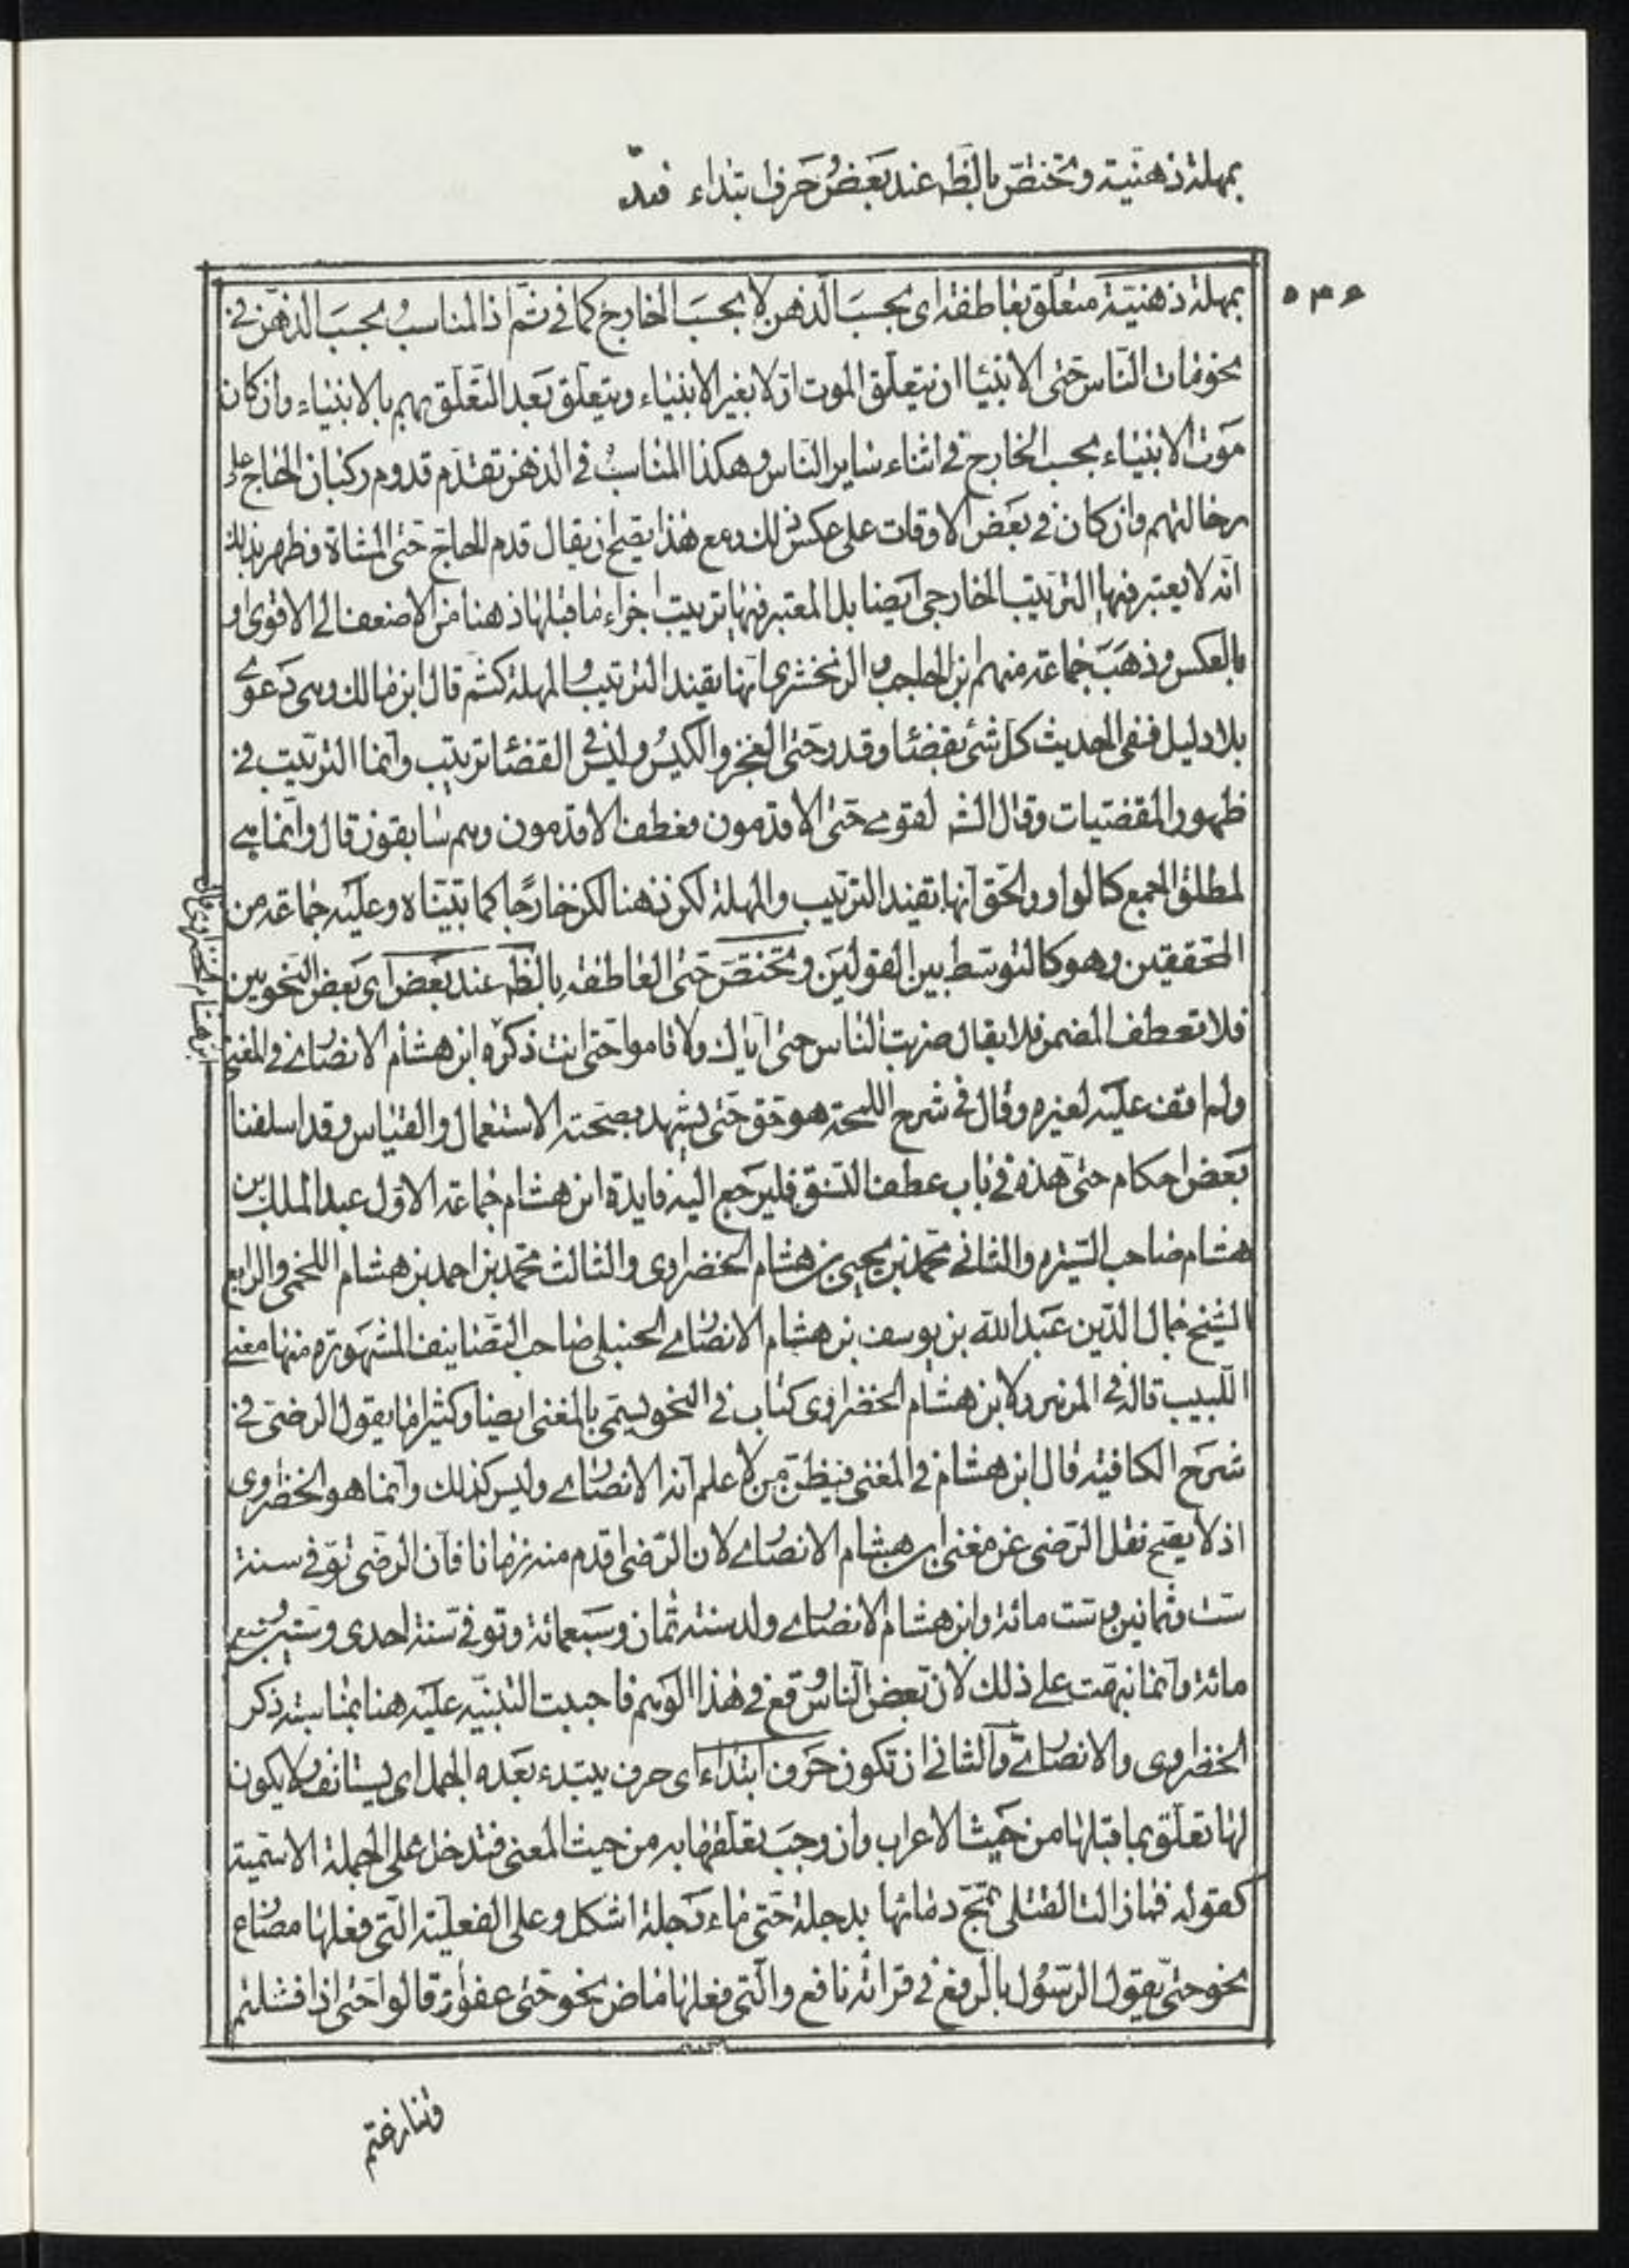 بمهلة ذهنية وتختص بالظ عند بعض حرف ابتداء
٥٣٥
بمهلة ذهنية متعلق بعاطفة اى بحسب الذهن لا بحسب الخارج كما فى ثم اذ المناسب بحسب الذهن فى
نحو مات الناس حتى الانبياء ان يتعلق الموت اولا بغير الانبياء ويتعلق بعد التعلق بهم بالانبياء وان كان
موت الانبياء بحسب الخارج فى اثناء ساير الناس وهكذا المناسب فى الذهن تقدم قدوم ركبان الحاج على
رجالتهم وان كان فى بعض الاوقات على عكس ذلك ومع هذا يصح ان يقال قدم الحاج حتى المشاة فظهر بذلك
انه لا يعتبر فيها الترتيب الخارجى ايضا بل المعتبر فيها ترتيب اجزاء ما قبلها ذهنا من الاضعف الى الاقوى او
بالعكس وذهب جماعة منهم ابن الحاجب والزمخشرى انها تفيد الترتيب والمهلة كثم قال ابن مالك وهى دعوى
بلا دليل ففى الحديث كل شئ بقضاء وقدر حتى العجز والكيس وليس فى القضاء ترتيب وانما الترتيب فى
ظهور المقضيات وقال الشـ لقومى حتى الاقدمون فعطف الاقدمون وهم سابقون قال وانما هى
لمطلق الجمع كالواو والحق انها تفيد الترتيب والمهلة لكن ذهنا لكن خارجا كما بيناه وعليه جماعة من
المحققين وهو كالتوسط بين القولين وتختص حتى العاطفة بالظ عند بعض اى بعض النحويين
ابن هشام الخضراوى قال
فلا تعطف المضمر فلا يقال ضربت الناس حتى اياك ولا قاموا حتى انت ذكره ابن هشام الانصارى فى المغنى
ولم اقف عليه لغيره وقال فى شرح اللمحة هو حق حتى يشهد بصحته الاستعمال والقياس وقد اسلفنا
بعض احكام حتى هذه فى باب عطف النسق فليرجع اليه فايدة ابن هشام جماعة الاول عبد الملك بن
هشام صاحب السيره والثانى محمد بن يحيى بن هشام الخضراوى والثالث محمد بن احمد بن هشام اللخمى والرابع
الشيخ جمال الدين عبد الله بن يوسف بن هشام الانصارى الحنبلى صاحب التصانيف المشهورة منها مغنى
اللبيب قال فى المزهر ولابن هشام الخضراوى كتاب فى النحو يسمى بالمغنى ايضا وكثيرا ما يقول الرضى فى
شرح الكافية قال ابن هشام فى المغنى فيظن من لا علم انه الانصارى وليس كذلك وانما هو الخضراوى
اذ لا يصح نقل الرضى عن مغنى ابن هشام الانصارى لان الرضى اقدم منه زمانا فان الرضى توفى سنة
ست وثمانين وست مائة وابن هشام الانصارى ولد سنة ثمان وسبعمائة وتوفى سنة احدى وستين وسبع
مائة وانما نبهت على ذلك لان بعض الناس وقع فى هذا الوهم فاحببت التنبيه عليه هنا بمناسبة ذكر
الخضراوى والانصارى والثانى ان تكون حرف ابتداء اى حرف يبتدء بعده الجمل اى يستانف ولا يكون
لها تعلق بما قبلها من حيث الاعراب وان وجب تعلقها به من حيث المعنى فتدخل على الجملة الاسمية
كقوله فما زالت القتلى تمج دمائها بدجلة حتى ماء دجلة اشكل وعلى الفعلية التى فعلها مضارع
نحو حتى يقول الرسول بالرفع فى قرائة نافع والتى فعلها ماض نحو حتى عفوا وقالوا حتى اذا فشلتم
وتنازعتم